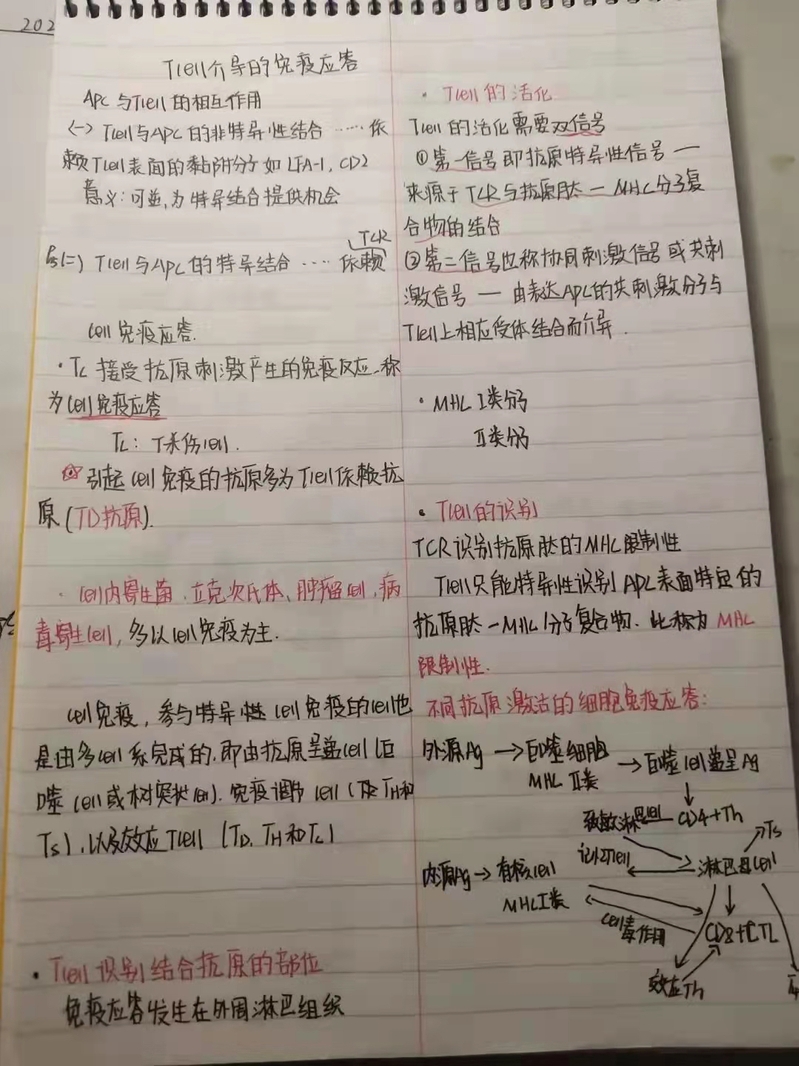 202
Tcell介导的免疫应答
APC与Tcell的相互作用
(一) Tcell与APC的非特异性结合 …… 依
赖Tcell表面的黏附分子如LFA-1, CD2
意义: 可逆, 为特异结合提供机会
TCR
(二) Tcell与APC的特异结合 …… 依赖
cell免疫应答.
· Tc 接受抗原刺激产生的免疫反应, 称
为cell免疫应答
Tc: T杀伤cell.
引起cell免疫的抗原多为Tcell依赖抗
原(TD抗原).
· cell内寄生菌、立克次氏体、肿瘤cell, 病
毒寄生cell, 多以cell免疫为主.
cell免疫, 参与特异性cell免疫的cell也
是由多cell系完成的, 即由抗原呈递cell(巨
噬cell或树突状cell). 免疫调节cell (TH和
Ts), 以及效应Tcell (TD, TH和Tc)
· Tcell识别结合抗原的部位
免疫应答发生在外周淋巴组织
· Tcell的活化
Tcell的活化需要双信号
①第一信号即抗原特异性信号 —
来源于TCR与抗原肽—MHC分子复
合物的结合
②第二信号也称协同刺激信号或共刺
激信号 — 由表达APC的共刺激分子与
Tcell上相应受体结合而介导.
· MHC I类分子
II类分子
· Tcell的识别
TCR识别抗原肽的MHC限制性
Tcell只能特异性识别APC表面特定的
抗原肽—MHC分子复合物. 此称为MHC
限制性.
不同抗原激活的细胞免疫应答:
外源Ag → 巨噬细胞 → 巨噬cell递呈Ag
MHC II类
致敏淋巴cell CD4+Th
Ts
记忆Tcell 淋巴母cell
内源Ag → 有核cell
MHC I类
cell毒作用 CD8+CTL
效应Th